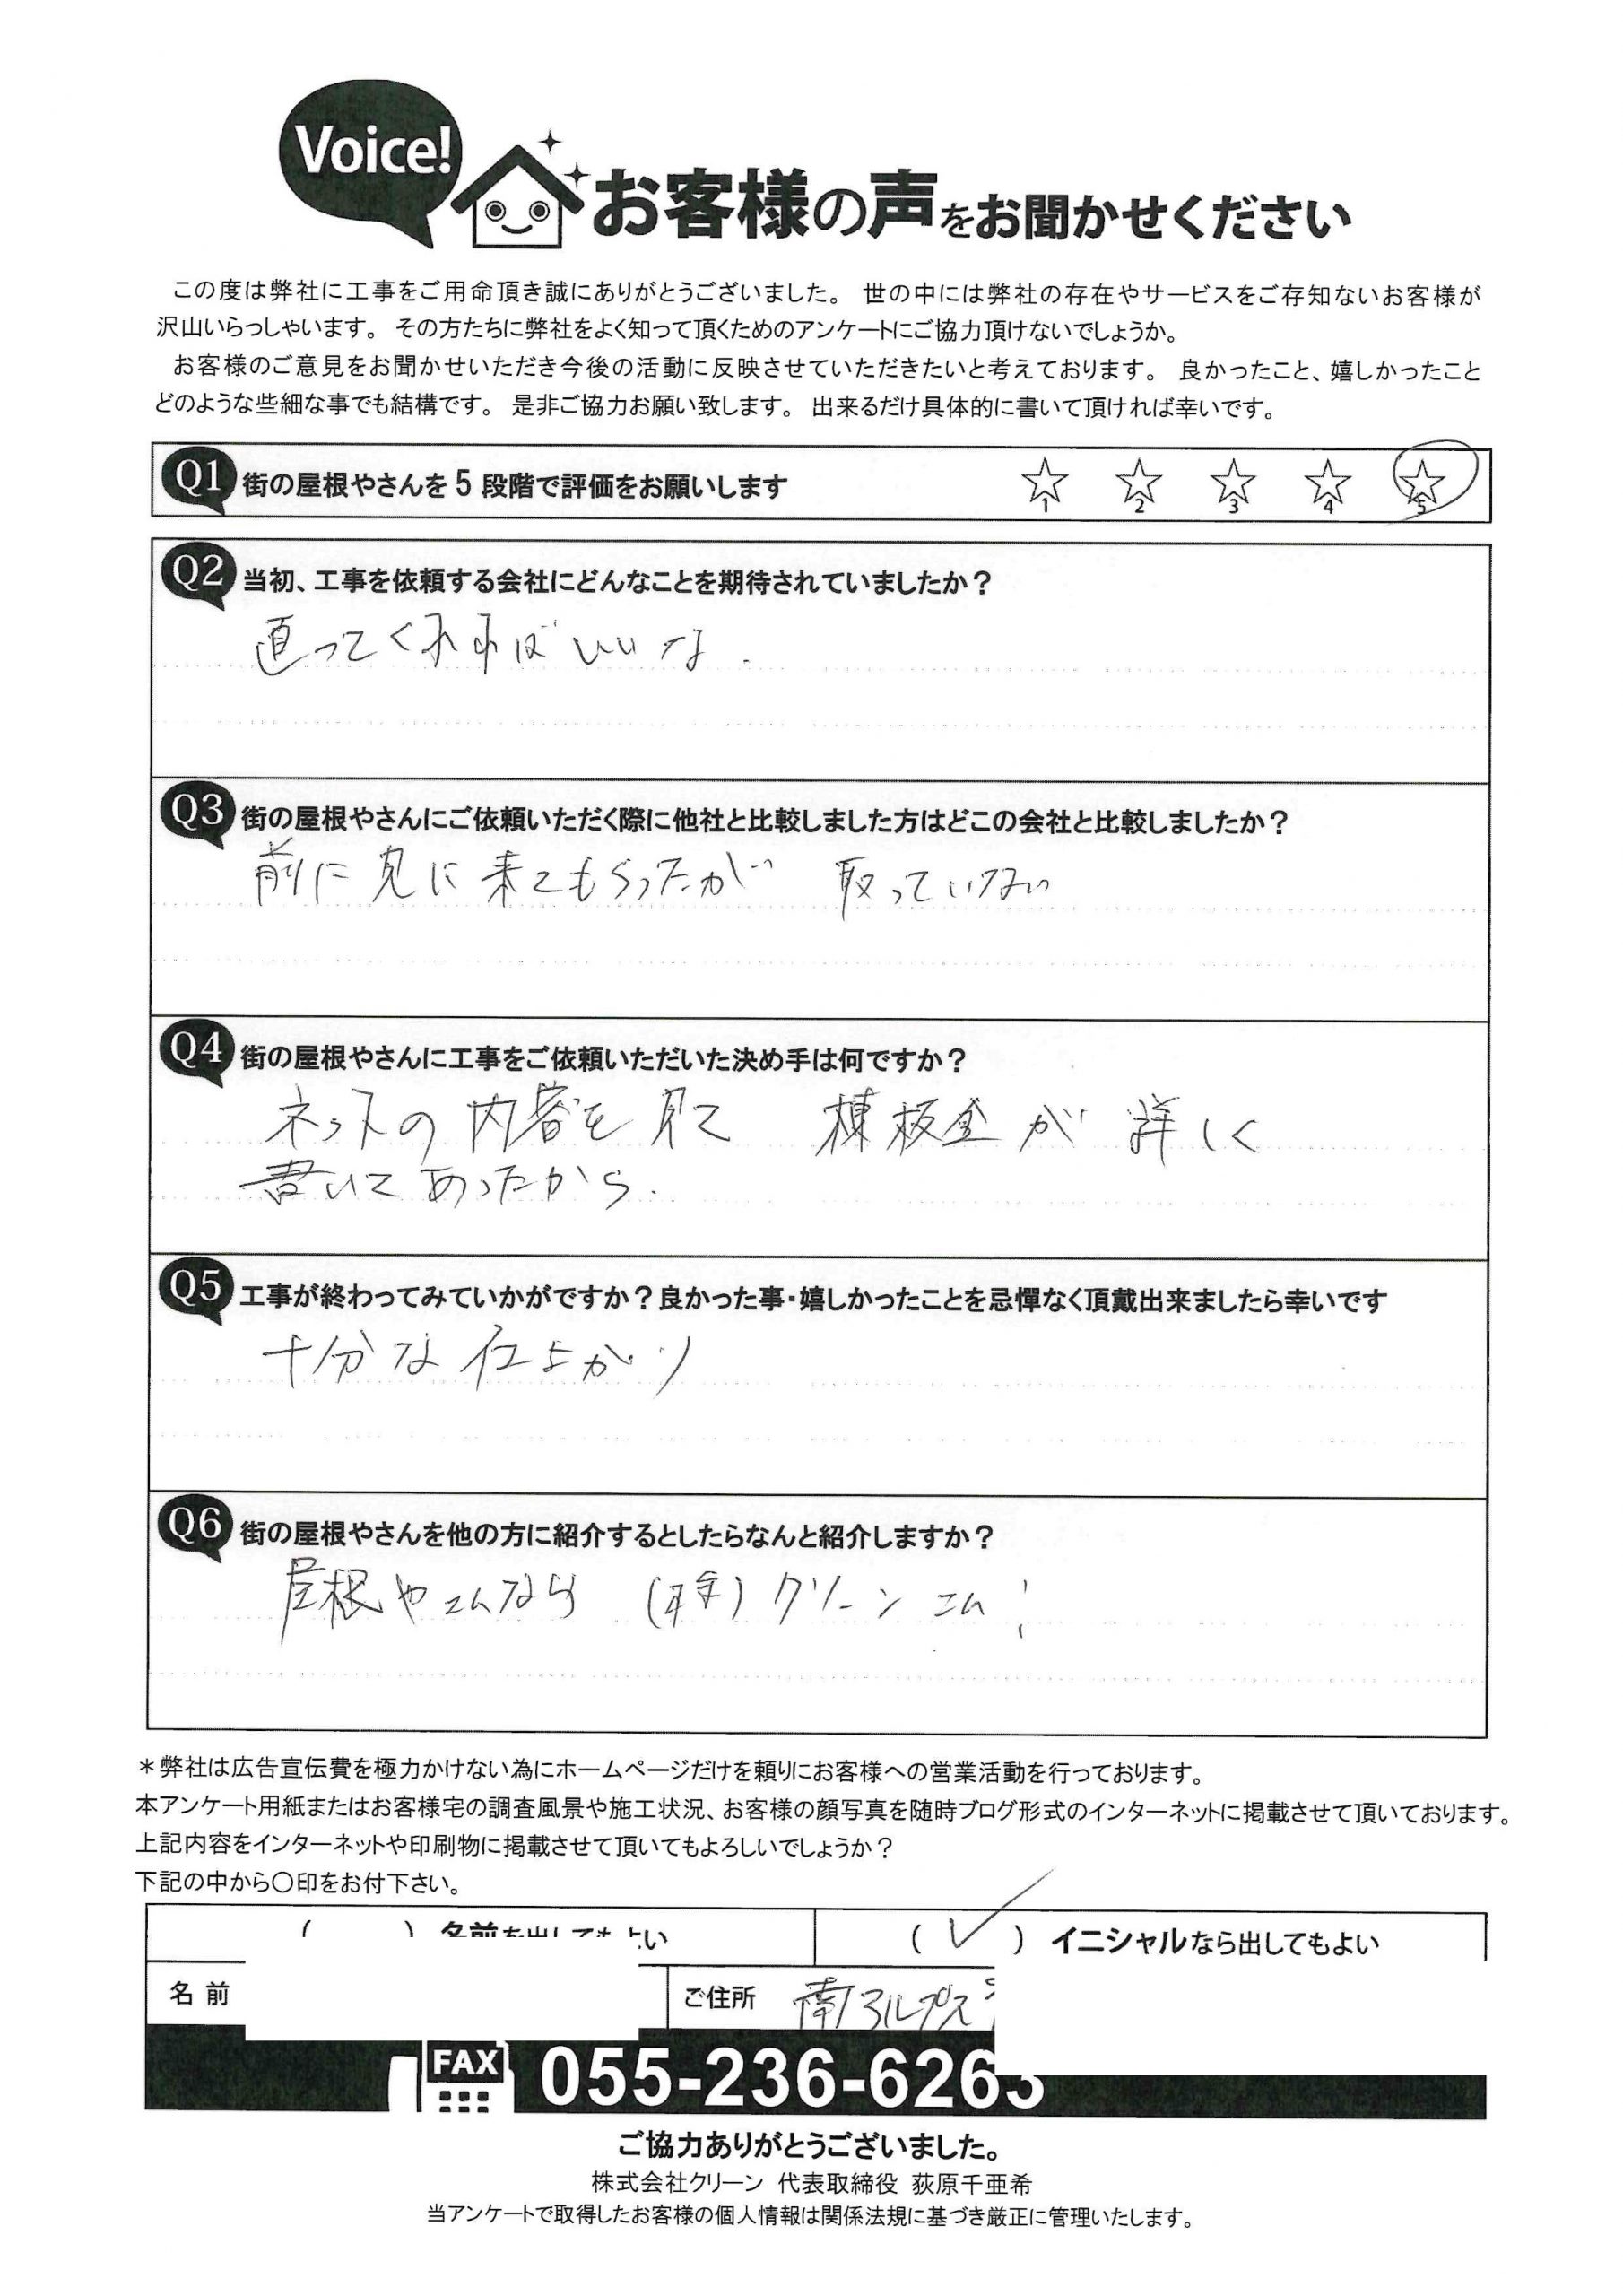 Voice!
お客様の声をお聞かせください
この度は弊社に工事をご用命頂き誠にありがとうございました。 世の中には弊社の存在やサービスをご存知ないお客様が
沢山いらっしゃいます。 その方たちに弊社をよく知って頂くためのアンケートにご協力頂けないでしょうか。
お客様のご意見をお聞かせいただき今後の活動に反映させていただきたいと考えております。 良かったこと、嬉しかったこと
どのような些細な事でも結構です。 是非ご協力お願い致します。 出来るだけ具体的に書いて頂ければ幸いです。
Q1 街の屋根やさんを5段階で評価をお願いします ☆1 ☆2 ☆3 ☆4 ☆5
Q2 当初、工事を依頼する会社にどんなことを期待されていましたか？
直ってくれればいいな.
Q3 街の屋根やさんにご依頼いただく際に他社と比較しました方はどこの会社と比較しましたか？
前に見に来てもらったが 取っていない
Q4 街の屋根やさんに工事をご依頼いただいた決め手は何ですか？
ネットの内容を見て 棟板金が詳しく
書いてあったから.
Q5 工事が終わってみていかがですか？良かった事・嬉しかったことを忌憚なく頂戴出来ましたら幸いです
十分な仕上がり
Q6 街の屋根やさんを他の方に紹介するとしたらなんと紹介しますか？
屋根やさんなら (株)クリーンさん!
＊弊社は広告宣伝費を極力かけない為にホームページだけを頼りにお客様への営業活動を行っております。
本アンケート用紙またはお客様宅の調査風景や施工状況、お客様の顔写真を随時ブログ形式のインターネットに掲載させて頂いております。
上記内容をインターネットや印刷物に掲載させて頂いてもよろしいでしょうか？
下記の中から〇印をお付下さい。
( ) 名前を出してもよい (✓) イニシャルなら出してもよい
名前 ご住所 南アルプス
FAX 055-236-6263
ご協力ありがとうございました。
株式会社クリーン 代表取締役 荻原千亜希
当アンケートで取得したお客様の個人情報は関係法規に基づき厳正に管理いたします。